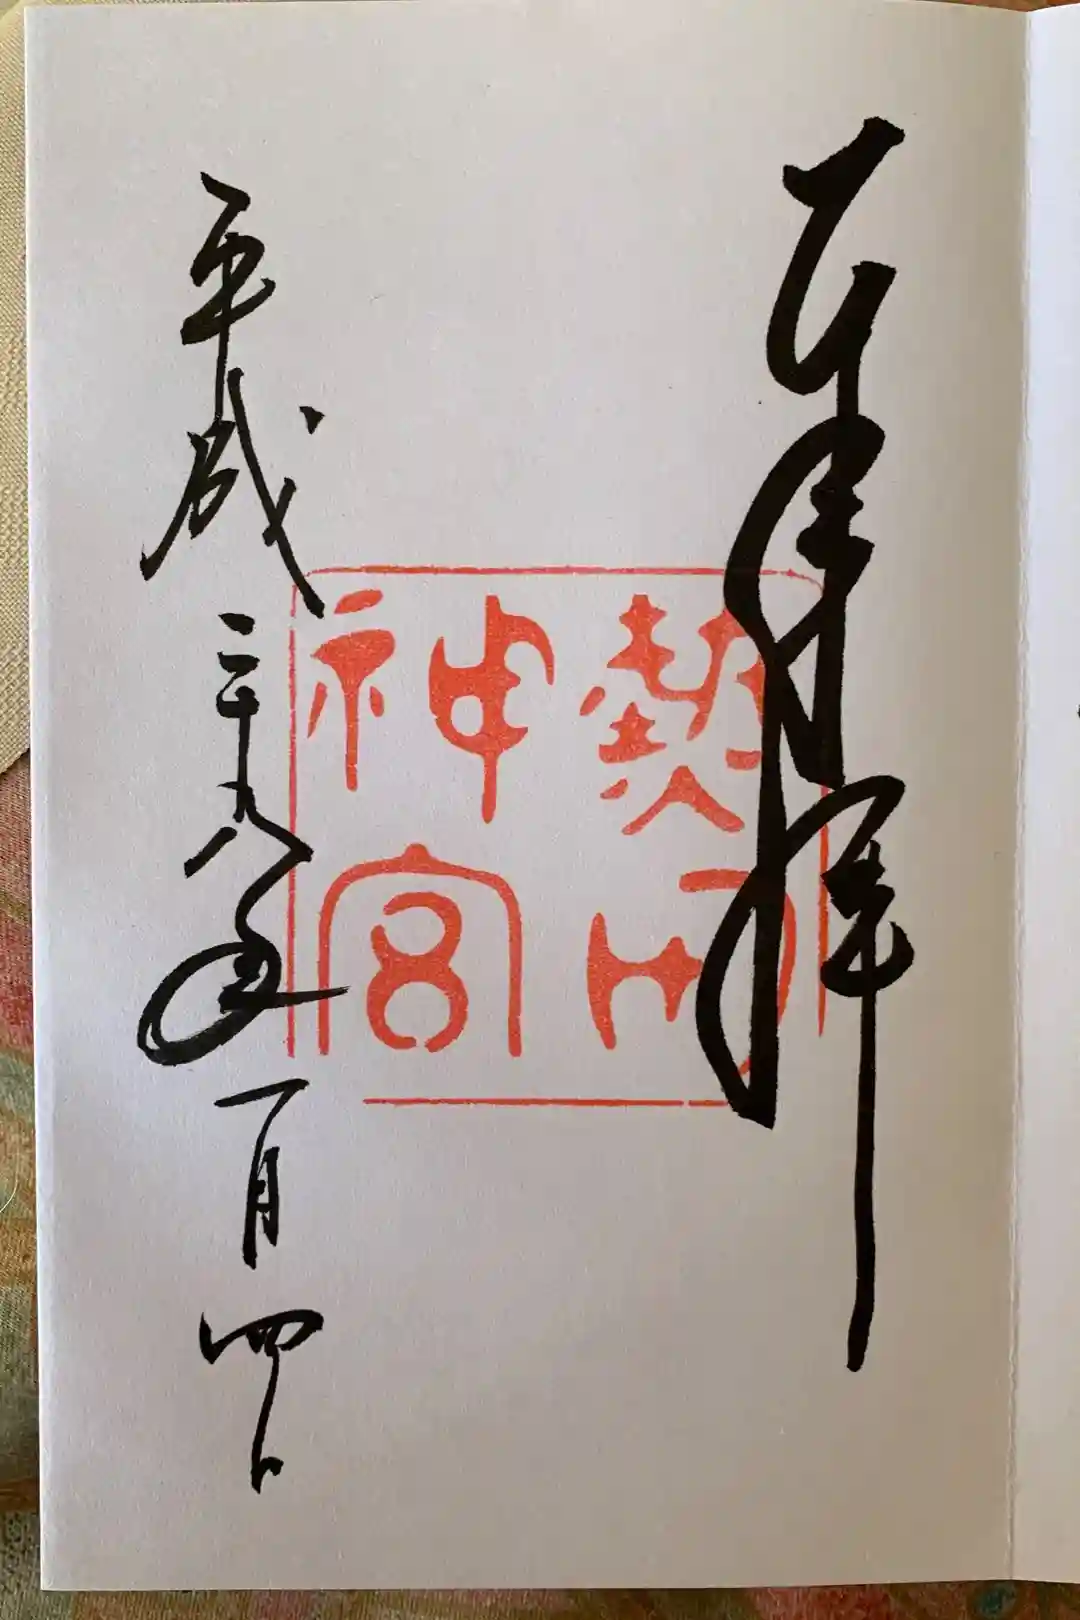 奉拝
熱田
神宮
平成二十九年一月四日